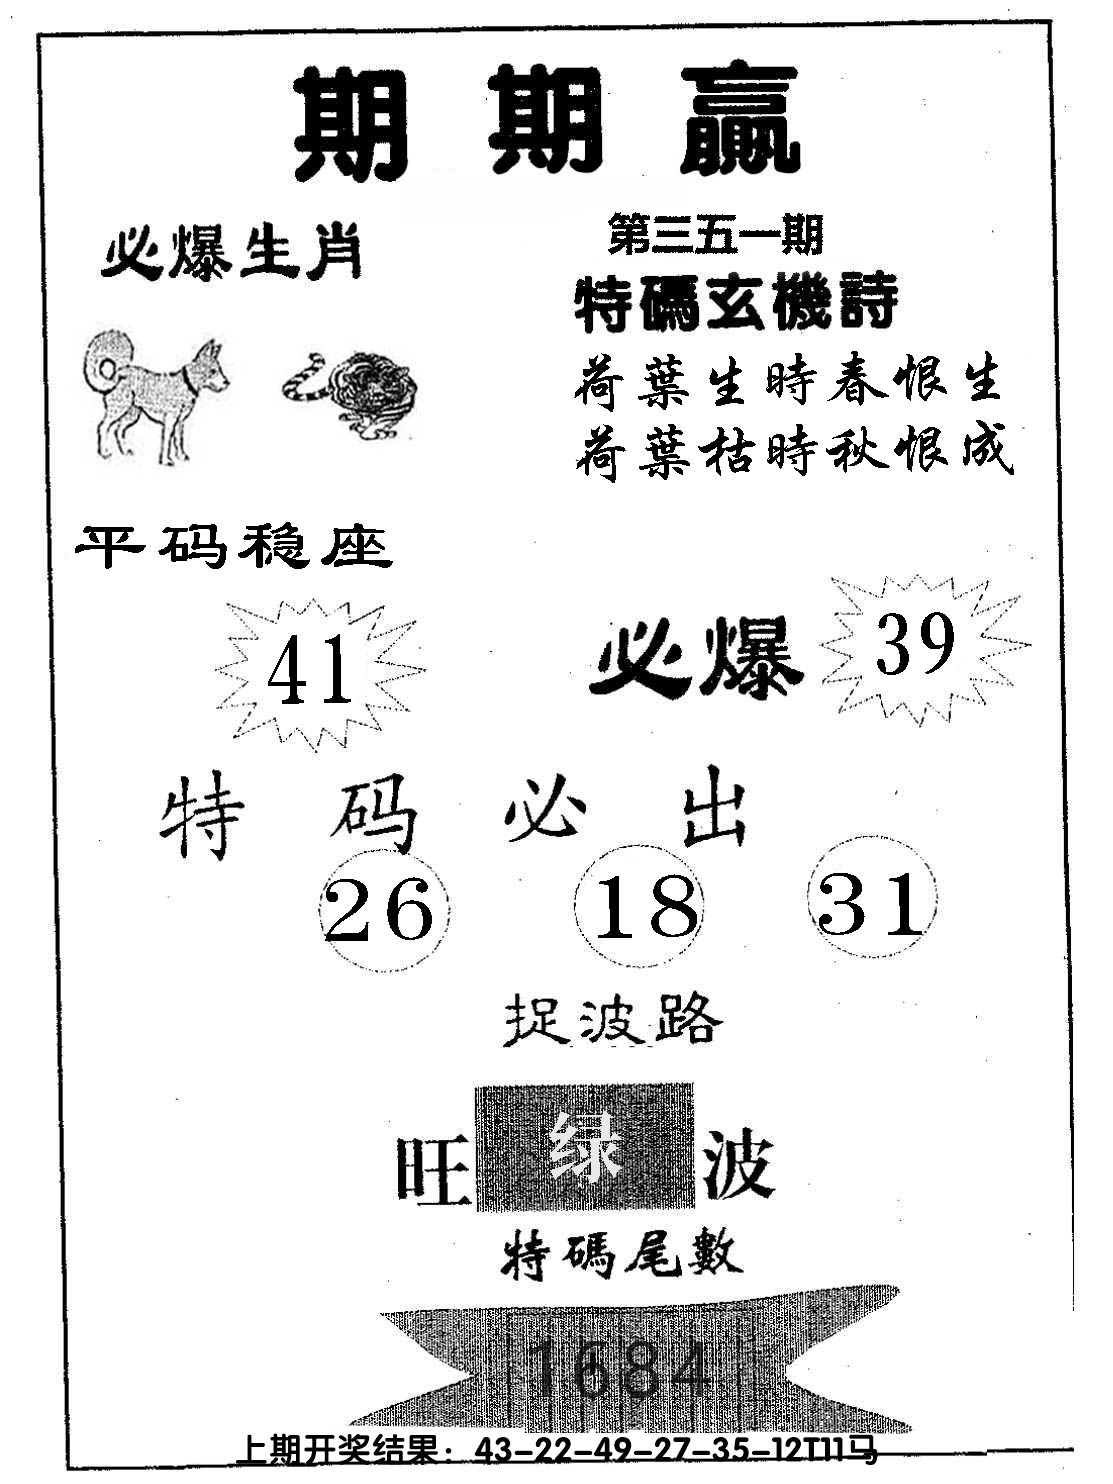 期期贏
必爆生肖
第三五一期
特碼玄機詩
荷葉生時春恨生
荷葉枯時秋恨成
平码稳座
41
必爆 39
特码必出
26 18 31
捉波路
旺绿波
特碼尾數
1684
上期开奖结果：43-22-49-27-35-12T11马